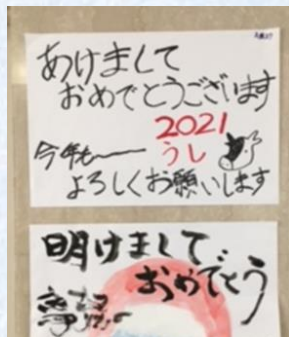 あけまして
おめでとうございます
2021
今年も
うし
よろしくお願いします
明けまして
おめでとう